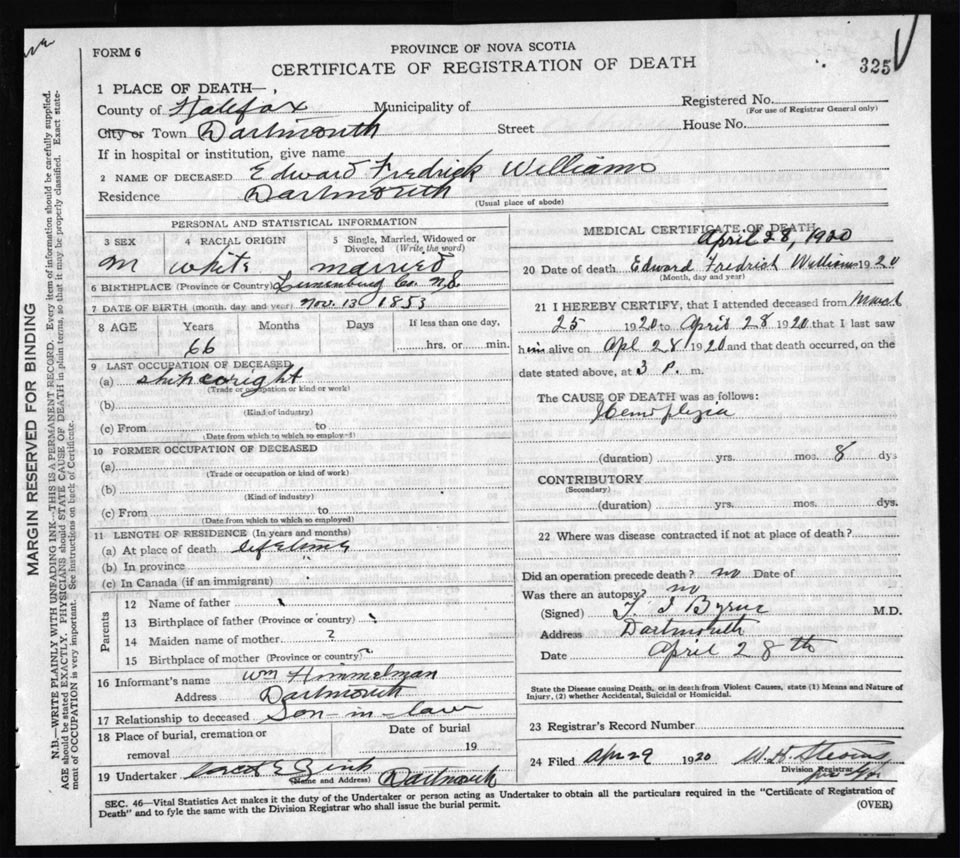 FORM 6
PROVINCE OF NOVA SCOTIA
CERTIFICATE OF REGISTRATION OF DEATH
325
1 PLACE OF DEATH—,
County of Halifax Municipality of Registered No.
(For use of Registrar General only)
City or Town Dartmouth Street House No.
If in hospital or institution, give name
2 NAME OF DECEASED Edward Fredrick Williams
Residence Dartmouth
(Usual place of abode)
PERSONAL AND STATISTICAL INFORMATION
3 SEX 4 RACIAL ORIGIN 5 Single, Married, Widowed or Divorced (Write the word)
M white married
6 BIRTHPLACE (Province or Country) Lunenburg Co. N.S.
7 DATE OF BIRTH (month, day and year) Nov. 13 1853
8 AGE Years Months Days If less than one day,
66 hrs. or min.
9 LAST OCCUPATION OF DECEASED
(a) shipwright
(Trade or occupation or kind or work)
(b)
(Kind of industry)
(c) From to
(Date from which to which so employed)
10 FORMER OCCUPATION OF DECEASED
(a)
(Trade or occupation or kind of work)
(b)
(Kind of industry)
(c) From to
(Date from which to which so employed)
11 LENGTH OF RESIDENCE (In years and months)
(a) At place of death lifetime
(b) In province
(c) In Canada (if an immigrant) "
Parents
12 Name of father
13 Birthplace of father (Province or country)
14 Maiden name of mother ?
15 Birthplace of mother (Province or country) ?
16 Informant's name Wm Himmelman
Address Dartmouth
17 Relationship to deceased Son in law
18 Place of burial, cremation or removal Date of burial
19
19 Undertaker Zink Dartmouth
(Name and Address)
MEDICAL CERTIFICATE OF DEATH
April 28, 1920
20 Date of death Edward Fredrick Williams 1920
(Month, day and year)
21 I HEREBY CERTIFY, that I attended deceased from March
25 1920 to April 28 1920 that I last saw
him alive on Apl 28 1920 and that death occurred, on the
date stated above, at 3 P. m.
The CAUSE OF DEATH was as follows:
Hemiplegia
(duration) yrs. mos. 8 dys
CONTRIBUTORY
(Secondary)
(duration) yrs. mos. dys.
22 Where was disease contracted if not at place of death?
Did an operation precede death? no Date of
Was there an autopsy? no
(Signed) Byrne M.D.
Address Dartmouth
Date April 28th
State the Disease causing Death, or in death from Violent Causes, state (1) Means and Nature of
Injury, (2) whether Accidental, Suicidal or Homicidal.
23 Registrar's Record Number
24 Filed Apr 29 1920
Division Registrar
SEC. 46—Vital Statistics Act makes it the duty of the Undertaker or person acting as Undertaker to obtain all the particulars required in the "Certificate of Registration of
Death" and to fyle the same with the Division Registrar who shall issue the burial permit. (OVER)
MARGIN RESERVED FOR BINDING
N.B.—WRITE PLAINLY WITH UNFADING INK—THIS IS A PERMANENT RECORD. Every item of information should be carefully supplied.
AGE should be stated EXACTLY. PHYSICIANS should STATE CAUSE OF DEATH in plain terms, so that it may be properly classified. Exact state-
ment of OCCUPATION is very important. See instructions on back of Certificate.